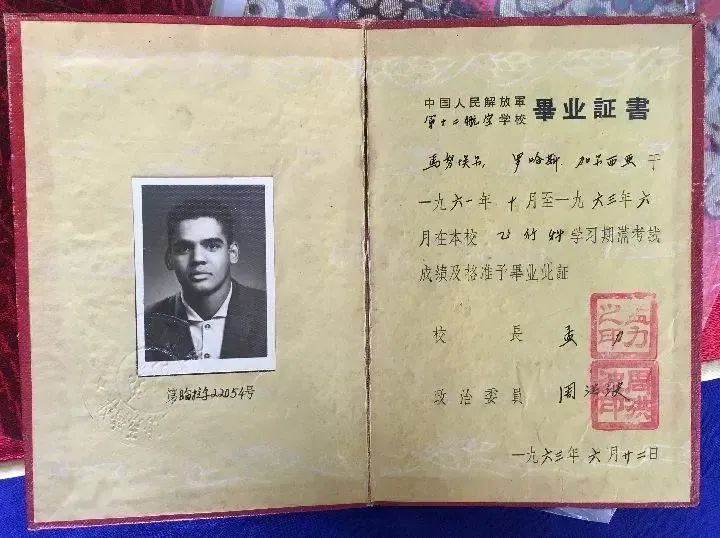 第哈字22054号
中国人民解放軍
第十二航空学校 畢业証書
馬努埃尔. 罗哈斯. 加尔西亚于
一九六一年十月至一九六三年六
月在本校飞行 学习期满考試
成績及格准予畢业此証
校長 孟力
孟力之印
政治委員 周洪波
周洪波印
一九六三年六月廿二日